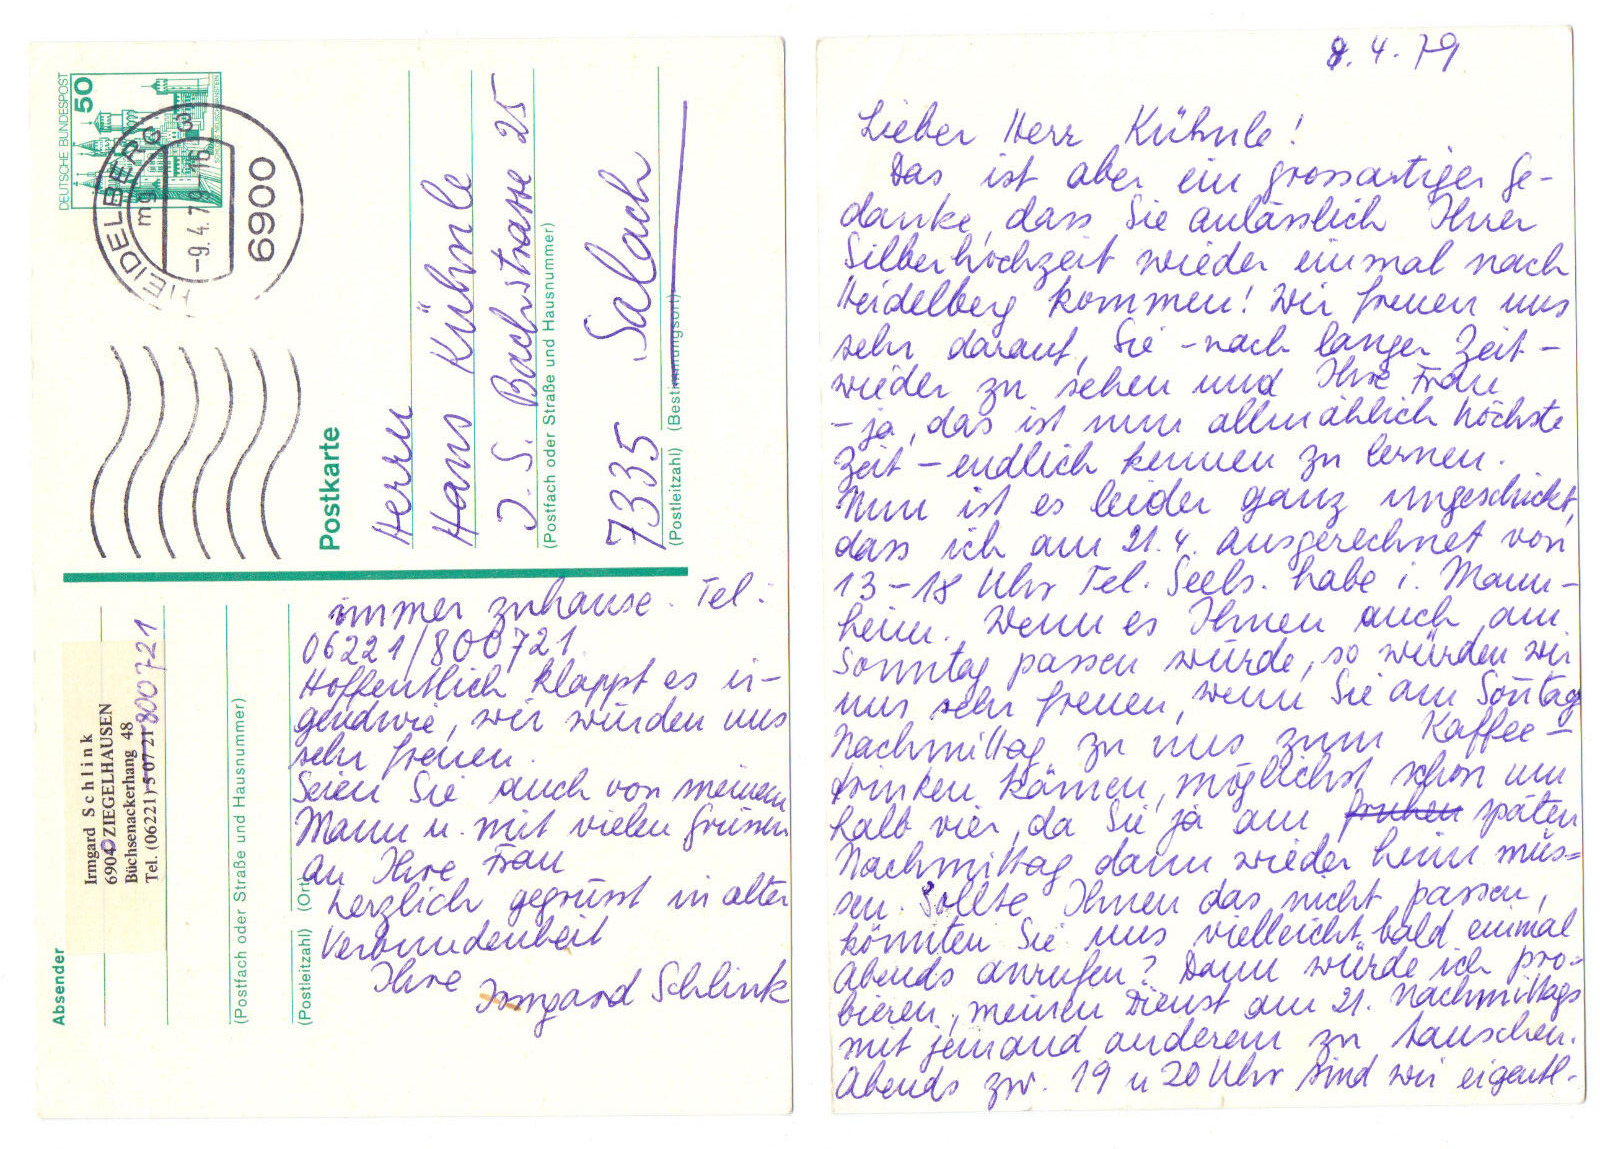 DEUTSCHE BUNDESPOST
50
HEIDELBERG 3
mg
-9.4.79-16
6900
Postkarte
Herrn
Hans Kühnle
J. S. Bachstrasse 25
(Postfach oder Straße und Hausnummer)
7335 Salach
(Postleitzahl) (Bestimmungsort)
Absender
Irmgard Schlink
6904 ZIEGELHAUSEN
Büchsenackerhang 48
Tel. (06221) 5 07 21 800721
(Postfach oder Straße und Hausnummer)
(Postleitzahl) (Ort)
8.4.79
Lieber Herr Kühnle!
Das ist aber ein grossartiger Ge-
danke, dass Sie anlässlich Ihrer
Silberhochzeit wieder einmal nach
Heidelberg kommen! Wir freuen uns
sehr darauf, Sie - nach langer Zeit -
wieder zu sehen und Ihre Frau
- ja, das ist nun allmählich höchste
Zeit - endlich kennen zu lernen.
Nun ist es leider ganz ungeschickt,
dass ich am 21.4. ausgerechnet von
13-18 Uhr Tel. Seels. habe i. Mann-
heim. Wenn es Ihnen auch am
Sonntag passen würde, so würden wir
uns sehr freuen, wenn Sie am Sonntag
Nachmittag zu uns zum Kaffee-
trinken kämen, möglichst schon um
halb vier, da Sie ja am fruhen späten
Nachmittag dann wieder heim müs=
sen. Sollte Ihnen das nicht passen,
könnten Sie uns vielleicht bald einmal
Abends anrufen? Dann würde ich pro=
bieren, meinen Dienst am 21. Nachmittags
mit jemand anderem zu tauschen.
Abends zw. 19 u 20 Uhr sind wir eigentl-
immer zuhause. Tel:
06221/800721
Hoffentlich klappt es ir-
gendwie, wir würden uns
sehr freuen.
Seien Sie auch von meinem
Mann u. mit vielen Grüssen
an Ihre Frau
herzlich gegrüsst in alter
Verbundenheit
Ihre Irmgard Schlink